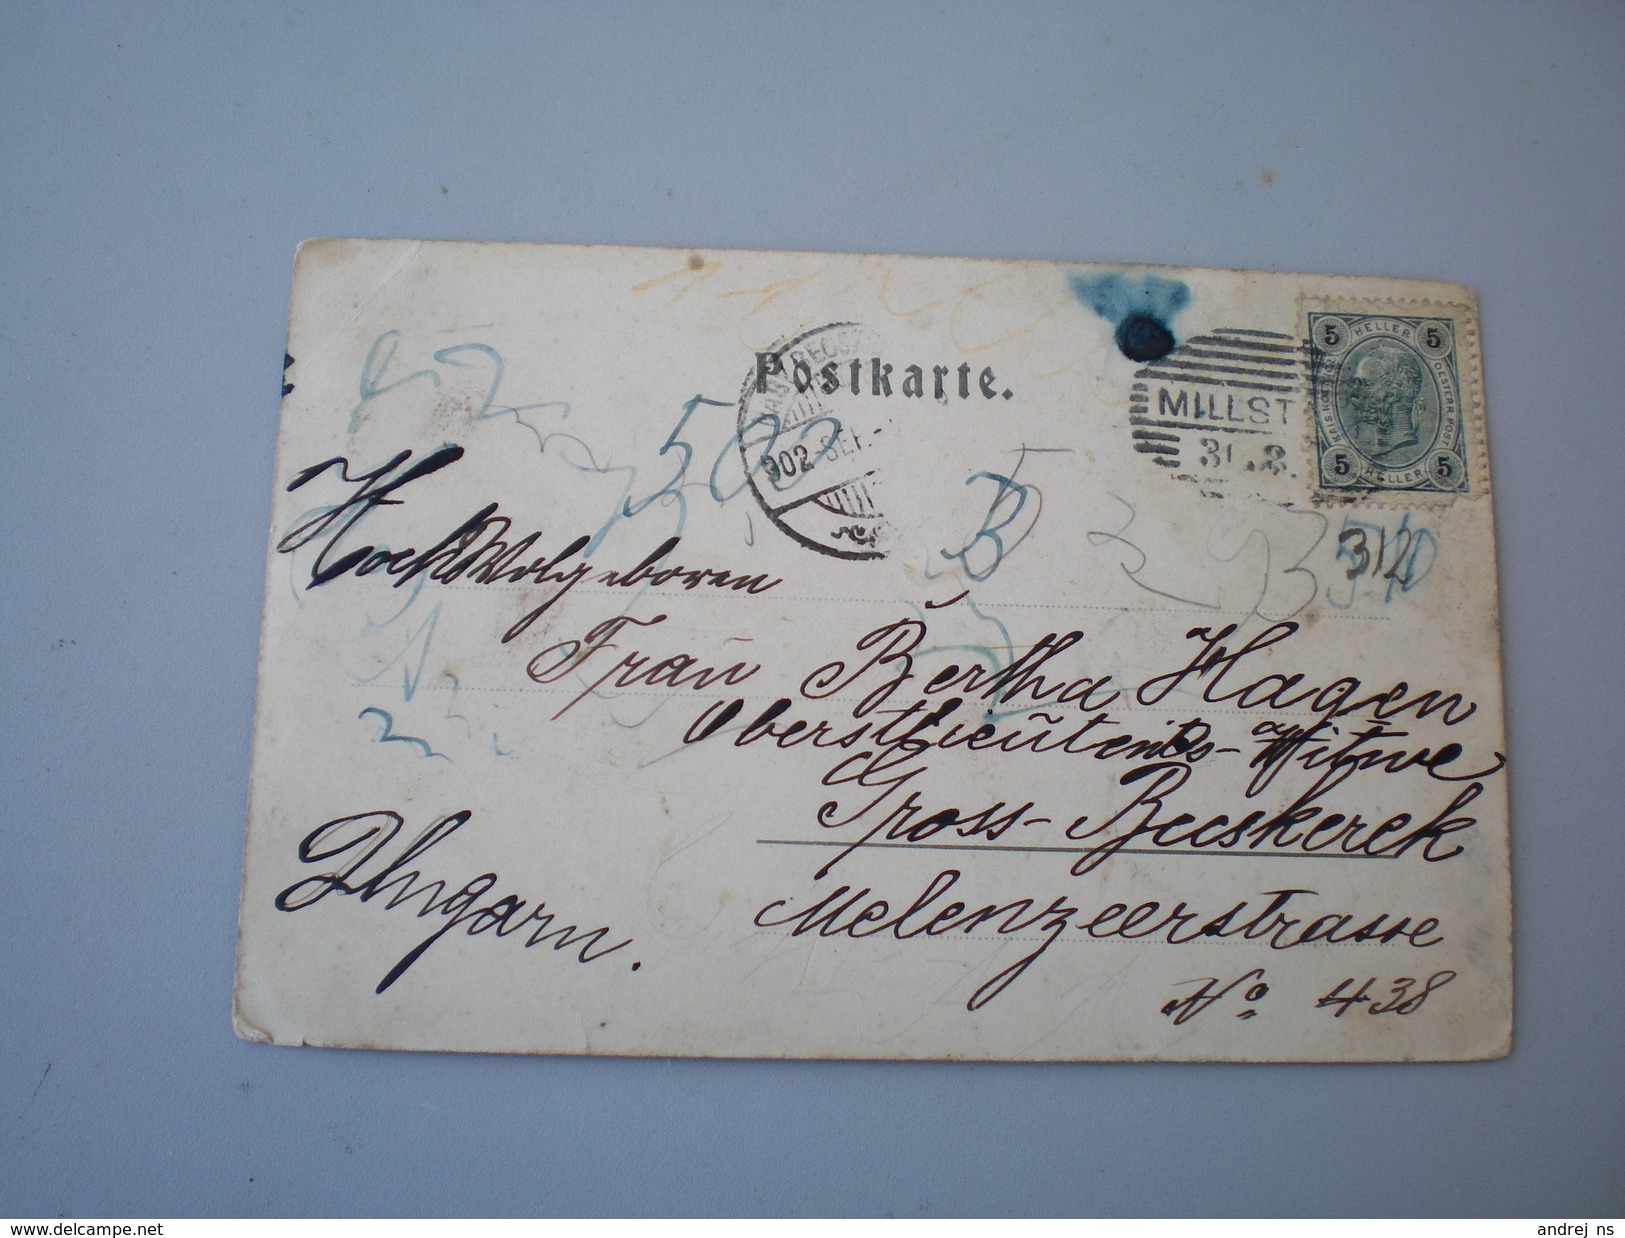 Postkarte.
NAGY BECSK
902 SEP.
MILLST
31.8.
5 HELLER 5
KAIS.KOENIGL. OESTERR.POST
5 HELLER 5
500
312
HochWolgeboren
Frau Bertha Hagen
Oberstlieutenants-Witwe
Gross-Becskerek
Ungarn.
Melenzeerstrasse
No 438
www.delcampe.net
andrej_ns